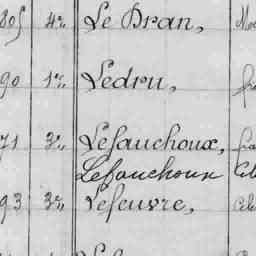 805 4e Le Dran,
90 1re Ledru,
71 3e Lefauchoux,
Lefauchoux
93 3e Lefeuvre,